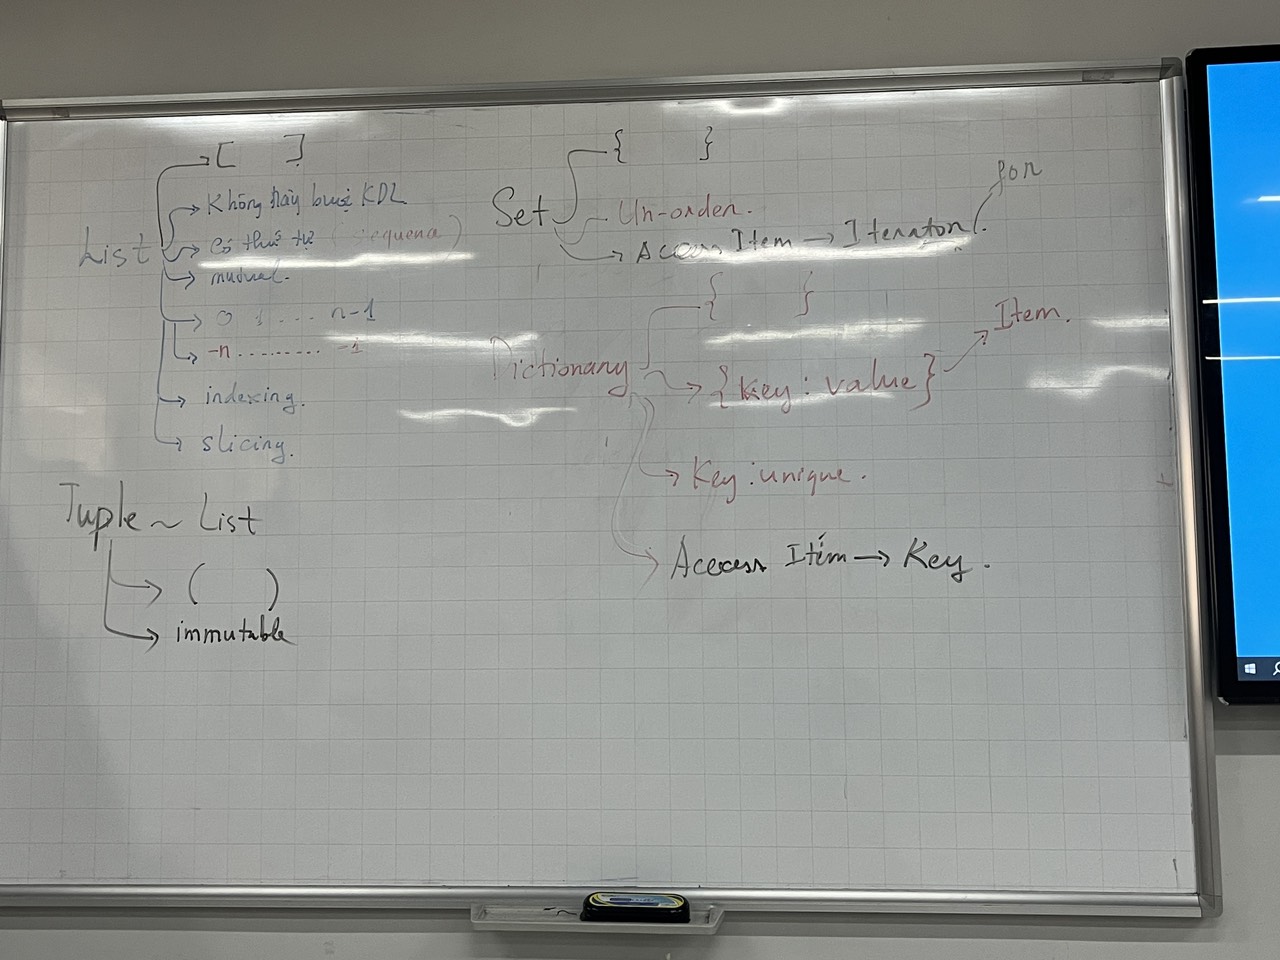 [ ]
Không ràng buộc KDL
List
Có thứ tự (sequence)
mutual.
0 1 .... n-1
-n ......... -1
indexing.
slicing.
Tuple ~ List
( )
immutable
{ }
Set
Un-order.
Access Item → Iterator (.
for
{ }
Dictionary
{Key : value}
Item.
Key : unique.
Access Item → Key.